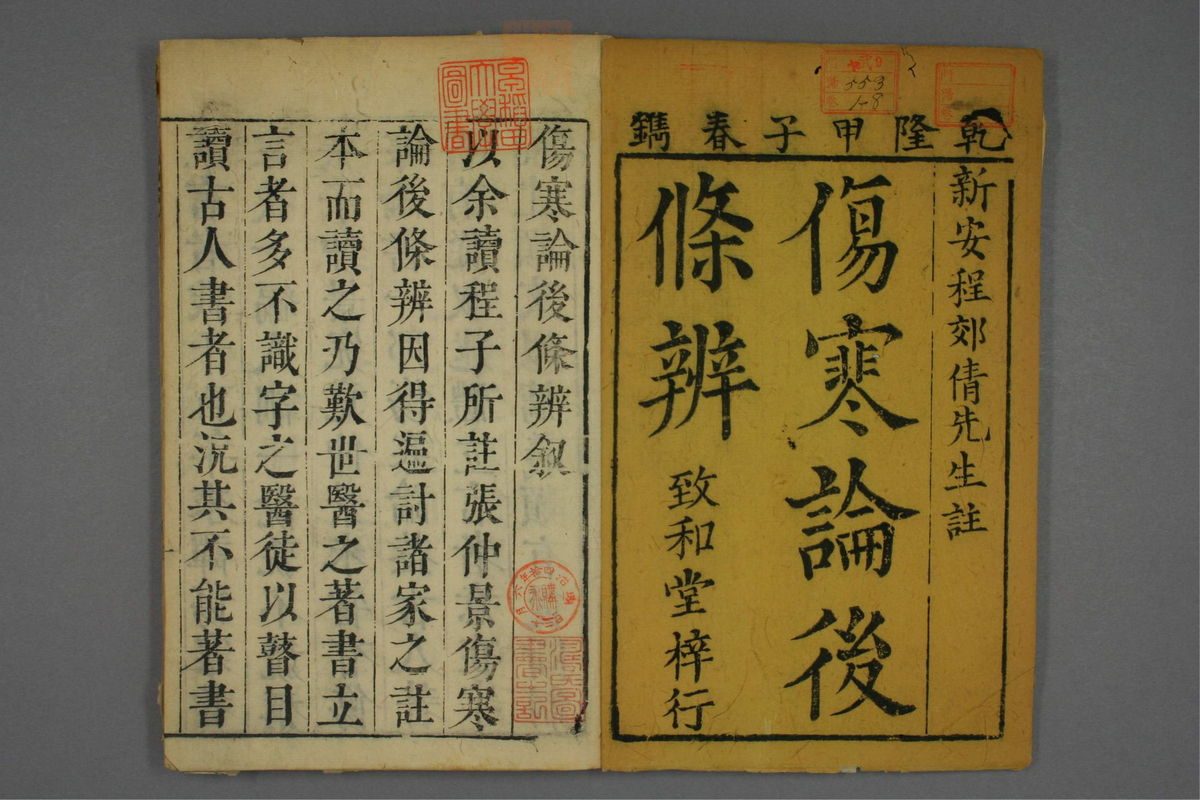 乾隆甲子春鐫
新安程郊倩先生註
傷寒論後
條辨
致和堂梓行
553
1-8
傷寒論後條辨叙
以余讀程子所註張仲景傷寒
論後條辨因得遍討諸家之註
本而讀之乃歎世醫之著書立
言者多不識字之醫徒以瞽目
讀古人書者也況其不能著書
早稲田大學圖書